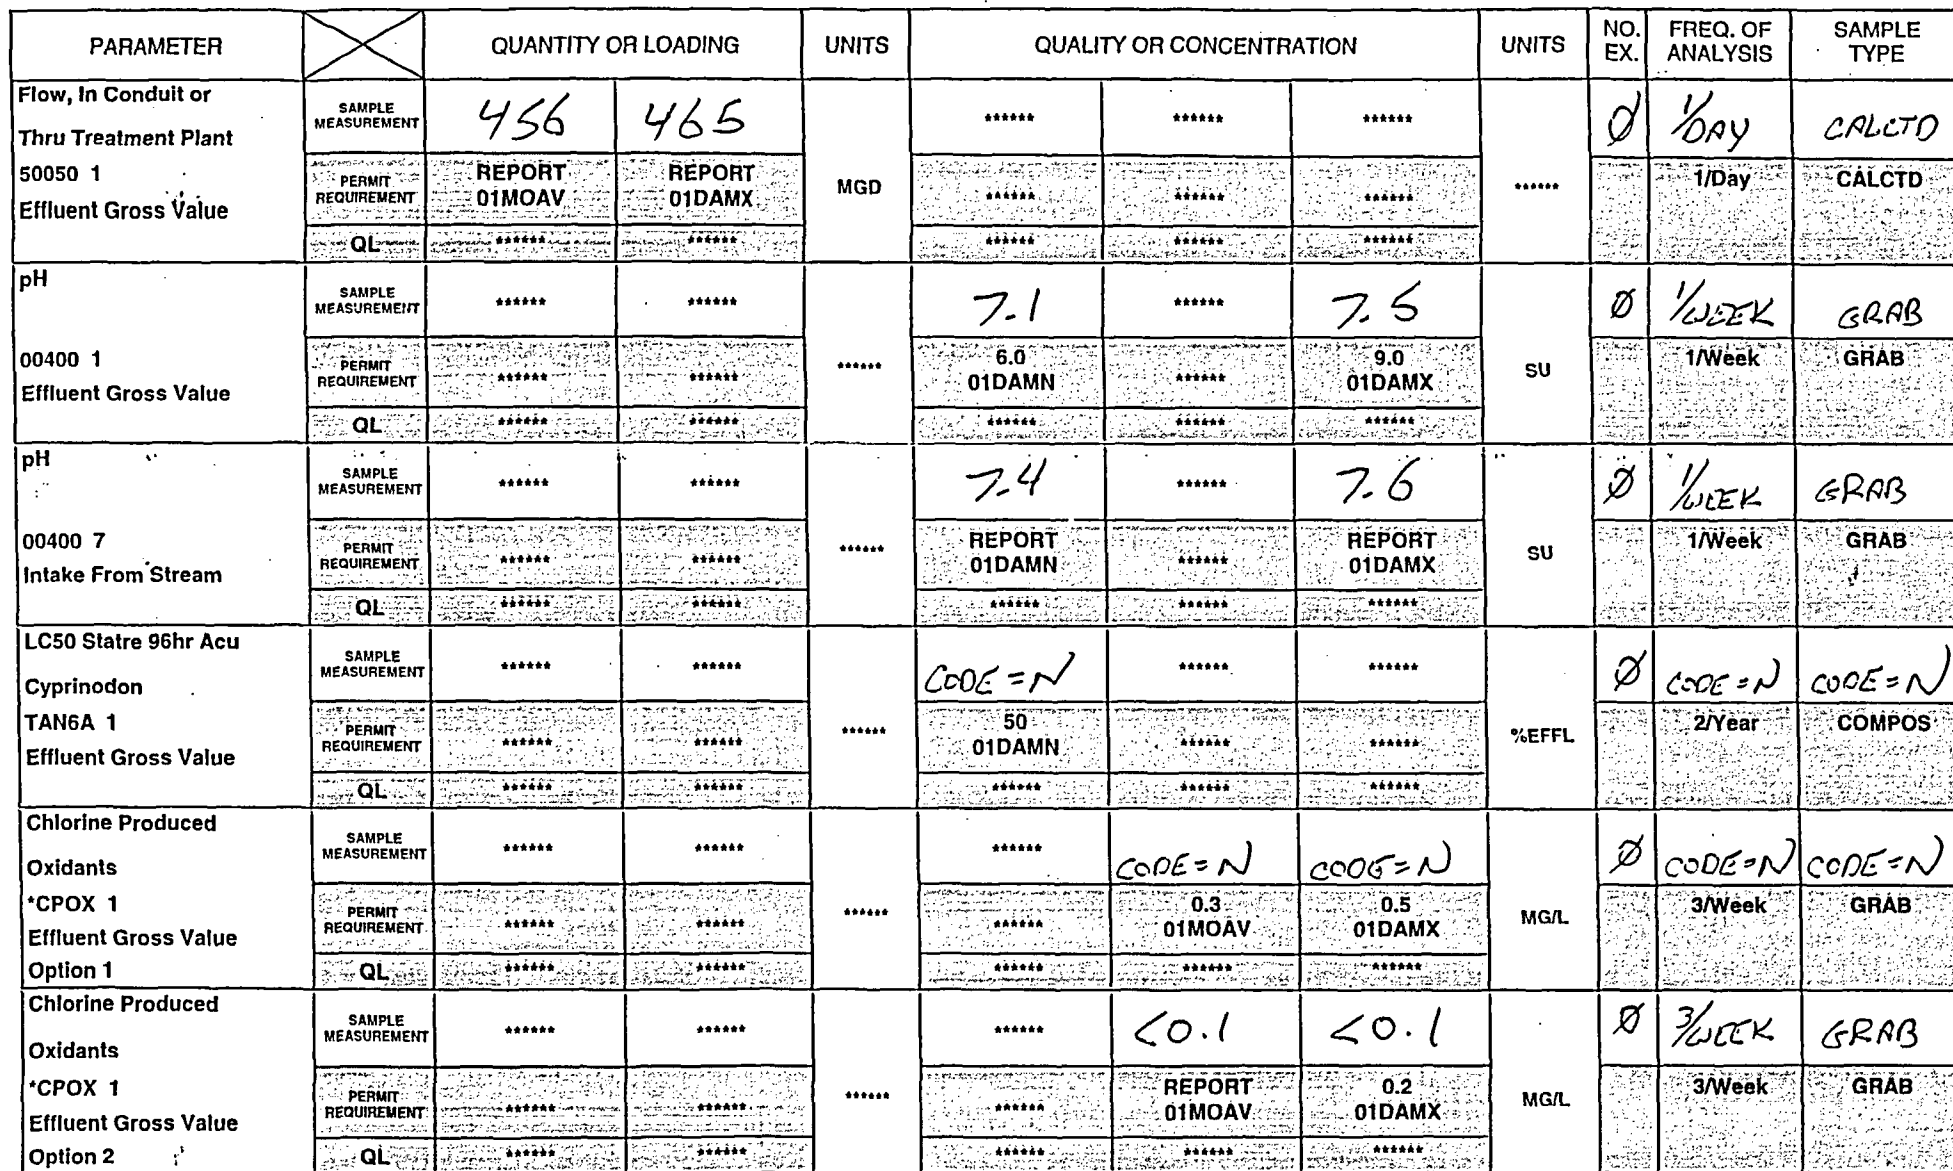 PARAMETER QUANTITY OR LOADING UNITS QUALITY OR CONCENTRATION UNITS NO. EX. FREQ. OF ANALYSIS SAMPLE TYPE
Flow, In Conduit or
Thru Treatment Plant
50050 1
Effluent Gross Value
SAMPLE MEASUREMENT 456 465 ****** ****** ****** Ø 1/DAY CALCTD
PERMIT REQUIREMENT REPORT 01MOAV REPORT 01DAMX MGD ****** ****** ****** ****** 1/Day CALCTD
QL ****** ****** ****** ****** ******
pH
00400 1
Effluent Gross Value
SAMPLE MEASUREMENT ****** ****** 7.1 ****** 7.5 Ø 1/WEEK GRAB
PERMIT REQUIREMENT ****** ****** ****** 6.0 01DAMN ****** 9.0 01DAMX SU 1/Week GRAB
QL ****** ****** ****** ****** ******
pH
00400 7
Intake From Stream
SAMPLE MEASUREMENT ****** ****** 7.4 ****** 7.6 Ø 1/WEEK GRAB
PERMIT REQUIREMENT ****** ****** ****** REPORT 01DAMN ****** REPORT 01DAMX SU 1/Week GRAB
QL ****** ****** ****** ****** ******
LC50 Statre 96hr Acu
Cyprinodon
TAN6A 1
Effluent Gross Value
SAMPLE MEASUREMENT ****** ****** CODE=N ****** ****** Ø CODE=N CODE=N
PERMIT REQUIREMENT ****** ****** ****** 50 01DAMN ****** ****** %EFFL 2/Year COMPOS
QL ****** ****** ****** ****** ******
Chlorine Produced
Oxidants
*CPOX 1
Effluent Gross Value
Option 1
SAMPLE MEASUREMENT ****** ****** ****** CODE=N CODE=N Ø CODE=N CODE=N
PERMIT REQUIREMENT ****** ****** ****** ****** 0.3 01MOAV 0.5 01DAMX MG/L 3/Week GRAB
QL ****** ****** ****** ****** ******
Chlorine Produced
Oxidants
*CPOX 1
Effluent Gross Value
Option 2
SAMPLE MEASUREMENT ****** ****** ****** <0.1 <0.1 Ø 3/WEEK GRAB
PERMIT REQUIREMENT ****** ****** ****** ****** REPORT 01MOAV 0.2 01DAMX MG/L 3/Week GRAB
QL ****** ****** ****** ****** ******